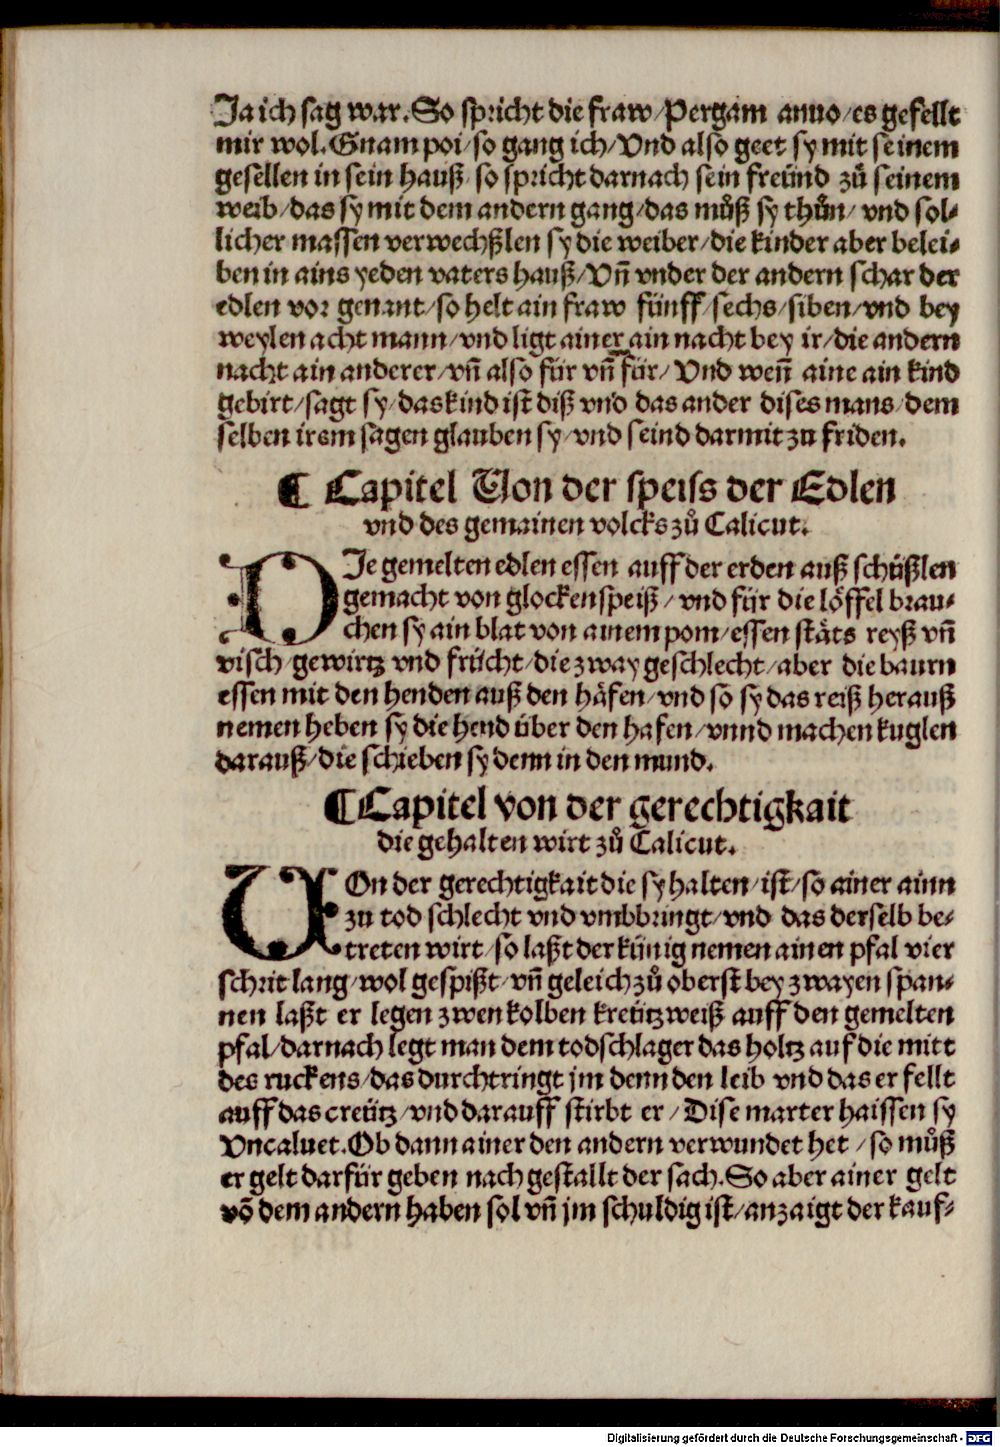 Ja ich sag war. So spricht die fraw/Pergam anno/es gefellt
mir wol. Gnam poi/so gang ich/Vnd also geet sy mit seinem
gesellen in sein hauß/so spricht darnach sein freünd zů seinem
weib/das sy mit dem andern gang/das můß sy thůn/vnd sol-
licher massen verwechßlen sy die weiber/die kinder aber belei-
ben in ains yeden vaters hauß/Vñ vnder der andern schar der
edlen vor genant/so helt ain fraw fünff/sechs/siben/vnd bey
weylen acht mann/vnd ligt ainer ain nacht bey ir/die andern
nacht ain anderer/vñ also für vñ für/Vnd weñ aine ain kind
gebirt/sagt sy/das kind ist diß vnd das ander dises mans/dem
selben irem sagen glauben sy/vnd seind darmit zu friden.
¶ Capitel Von der speiss der Edlen
vnd des gemainen volcks zů Calicut.
DIe gemelten edlen essen auff der erden auß schüßlen
gemacht von glockenspeiß/vnd für die löffel brau-
chen sy ain blat von ainem pom/essen stäts reyß vñ
visch/gewirtz vnd frücht/die zway geschlecht/aber die baurn
essen mit den henden auß den häfen/vnd so sy das reiß herauß
nemen heben sy die hend über den hafen/vnnd machen kuglen
darauß/die schieben sy denn in den mund.
¶Capitel von der gerechtigkait
die gehalten wirt zů Calicut.
VOn der gerechtigkait die sy halten/ist/so ainer ainn
zu tod schlecht vnd vmbbringt/vnd das derselb be-
treten wirt/so laßt der künig nemen ainen pfal vier
schrit lang/wol gespißt/vñ geleich zů oberst bey zwayen span-
nen laßt er legen zwen kolben kreützweiß auff den gemelten
pfal/darnach legt man dem todschlager das holtz auf die mitt
des ruckens/das durchtringt jm denn den leib vnd das er fellt
auff das creütz/vnd darauff stirbt er/Dise marter haissen sy
Vncaluet. Ob dann ainer den andern verwundet het/so můß
er gelt darfür geben nach gestallt der sach. So aber ainer gelt
võ dem andern haben sol vñ jm schuldig ist/anzaigt der kauf-
Digitalisierung gefördert durch die Deutsche Forschungsgemeinschaft - DFG